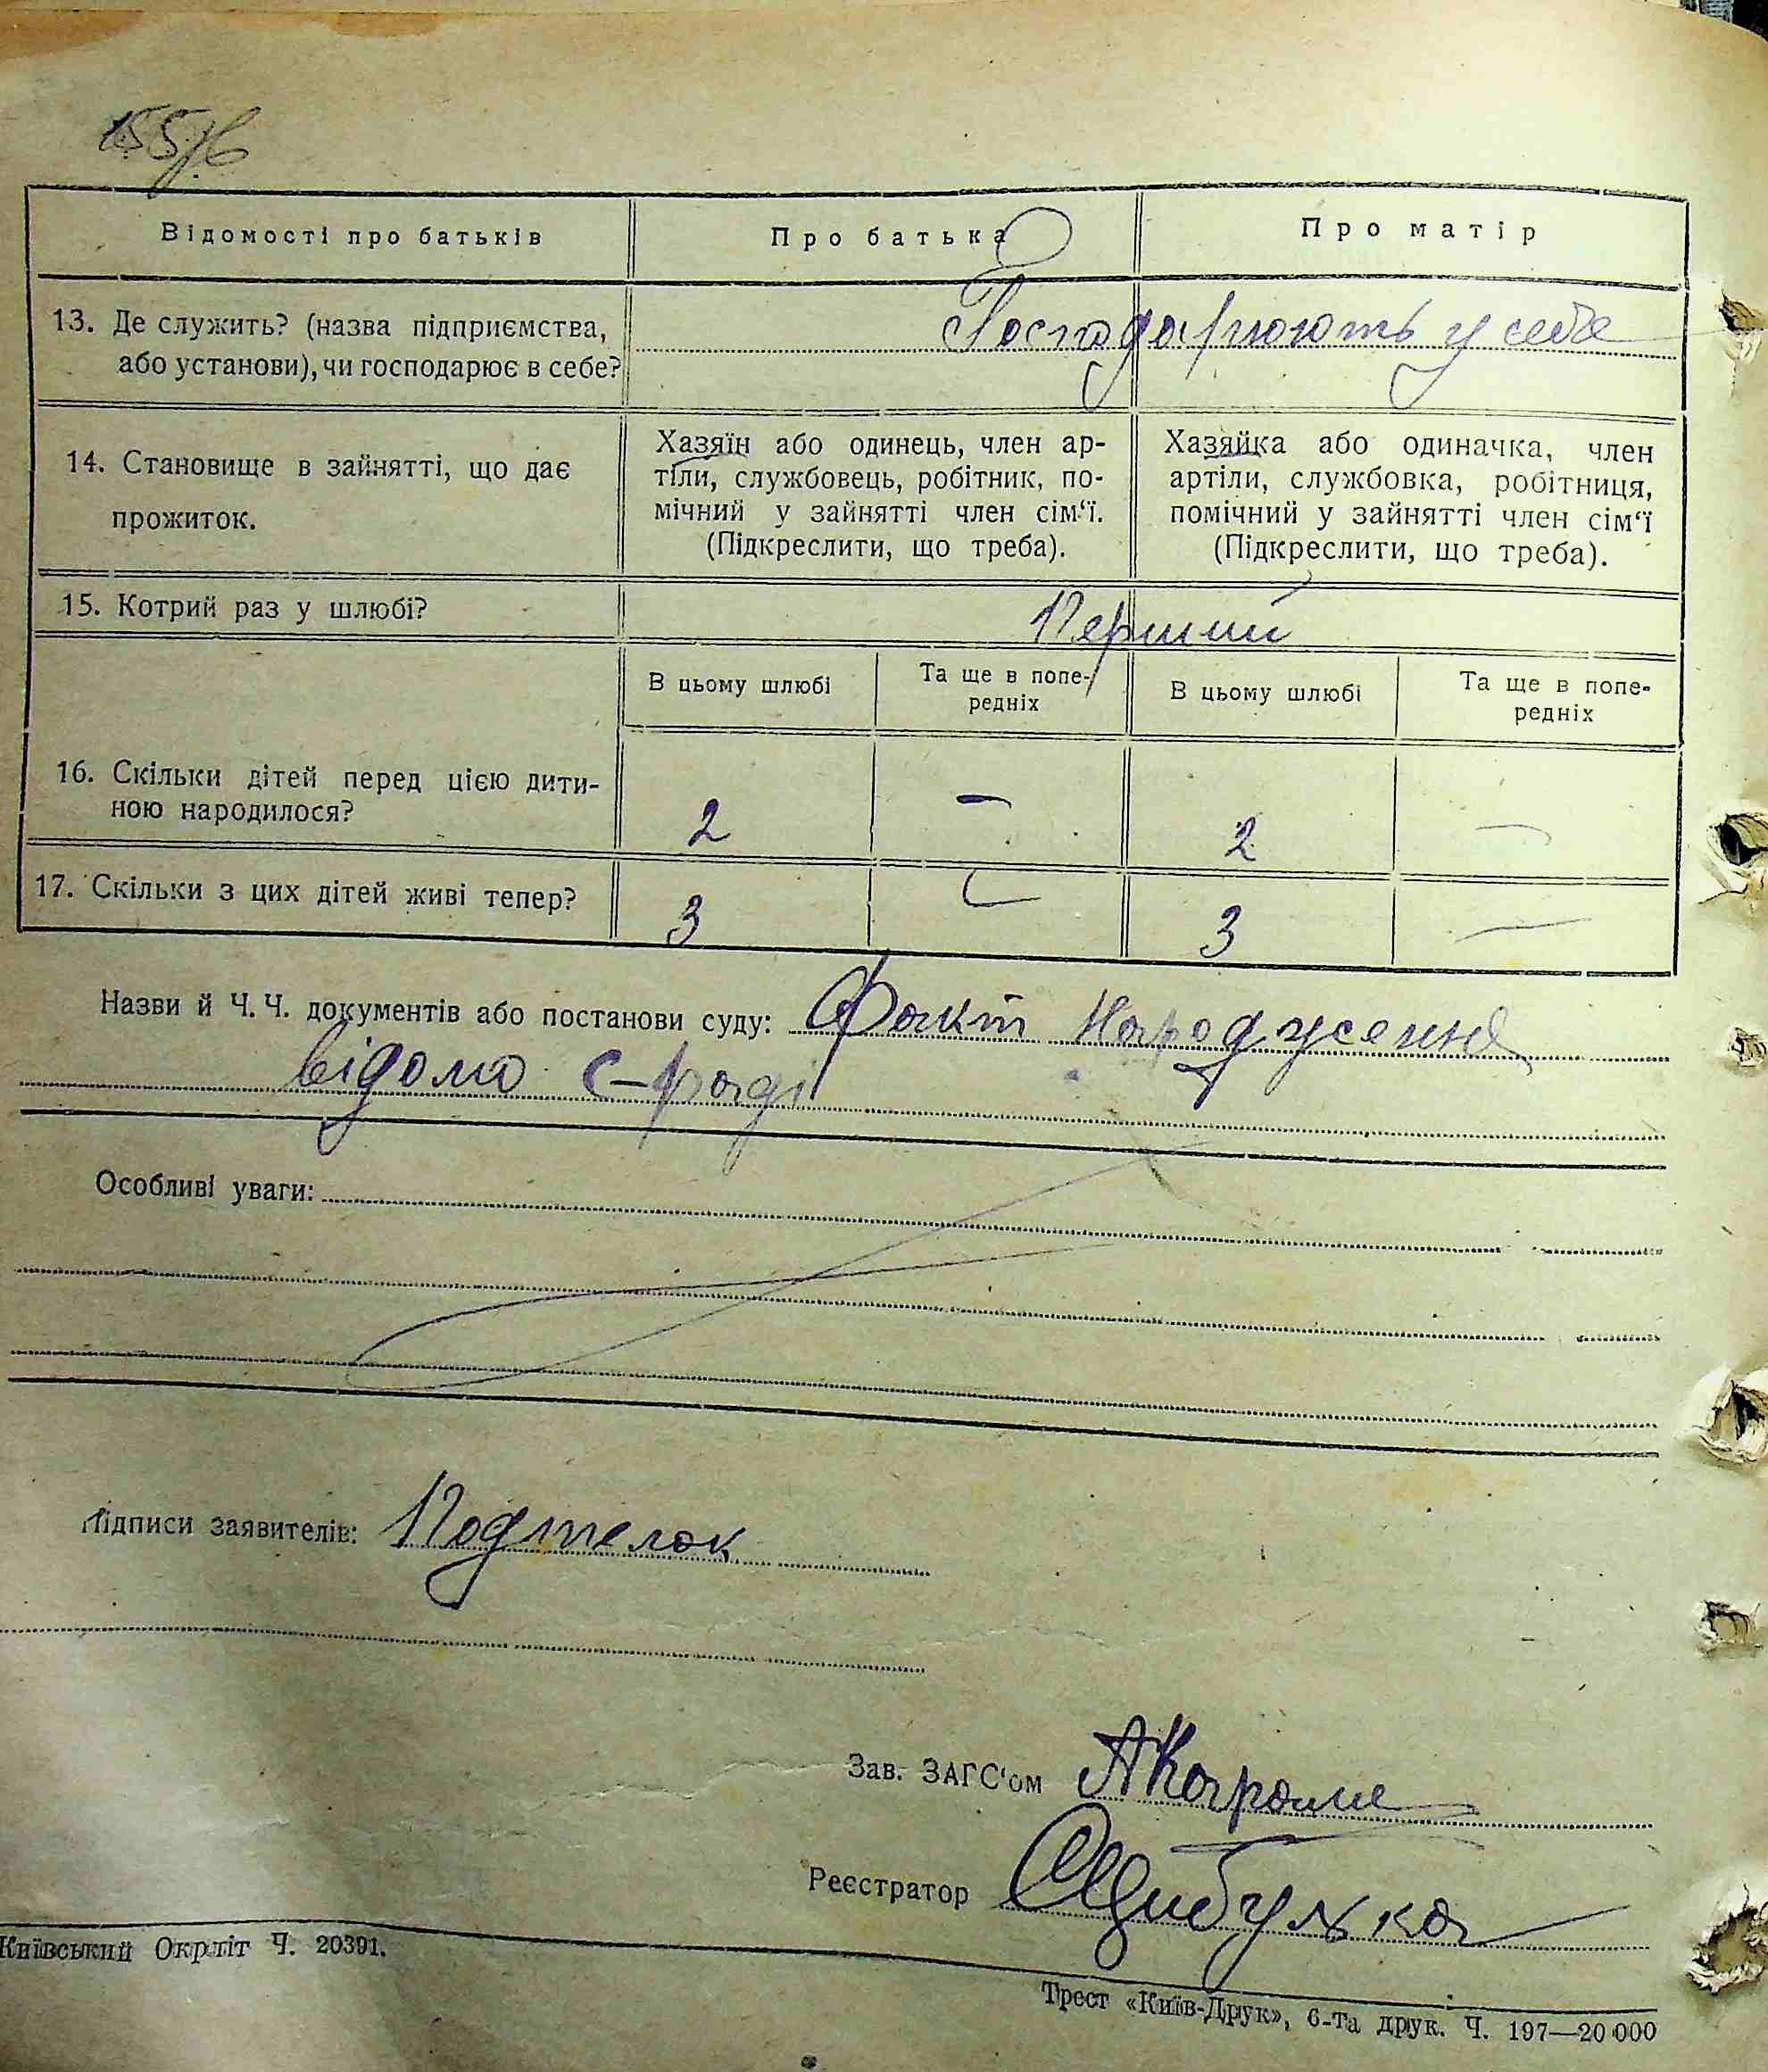 Відомості про батьків
Про батька
Про матір
13. Де служить? (назва підприємства,
або установи), чи господарює в себе?
Господарюють у себе
14. Становище в зайнятті, що дає
прожиток.
Хазяїн або одинець, член ар-
тіли, службовець, робітник, по-
мічний у зайнятті член сім‘ї.
(Підкреслити, що треба).
Хазяйка або одиначка, член
артіли, службовка, робітниця,
помічний у зайнятті член сім‘ї
(Підкреслити, що треба).
15. Котрий раз у шлюбі?
Перший
В цьому шлюбі
Та ще в попе-
редніх
В цьому шлюбі
Та ще в попе-
редніх
16. Скільки дітей перед цією дити-
ною народилося?
2 — 2 —
17. Скільки з цих дітей живі тепер?
3 — 3 —
Назви й Ч. Ч. документів або постанови суду: Факт народження
відомо с-раді
Особливі уваги:
Підписи заявителів: Подтелок
Зав. ЗАГС‘ом
Реєстратор Цибулка
Київський Окрліт Ч. 20391.
Трест «Київ-Друк», 6-та друк. Ч. 197—20 000